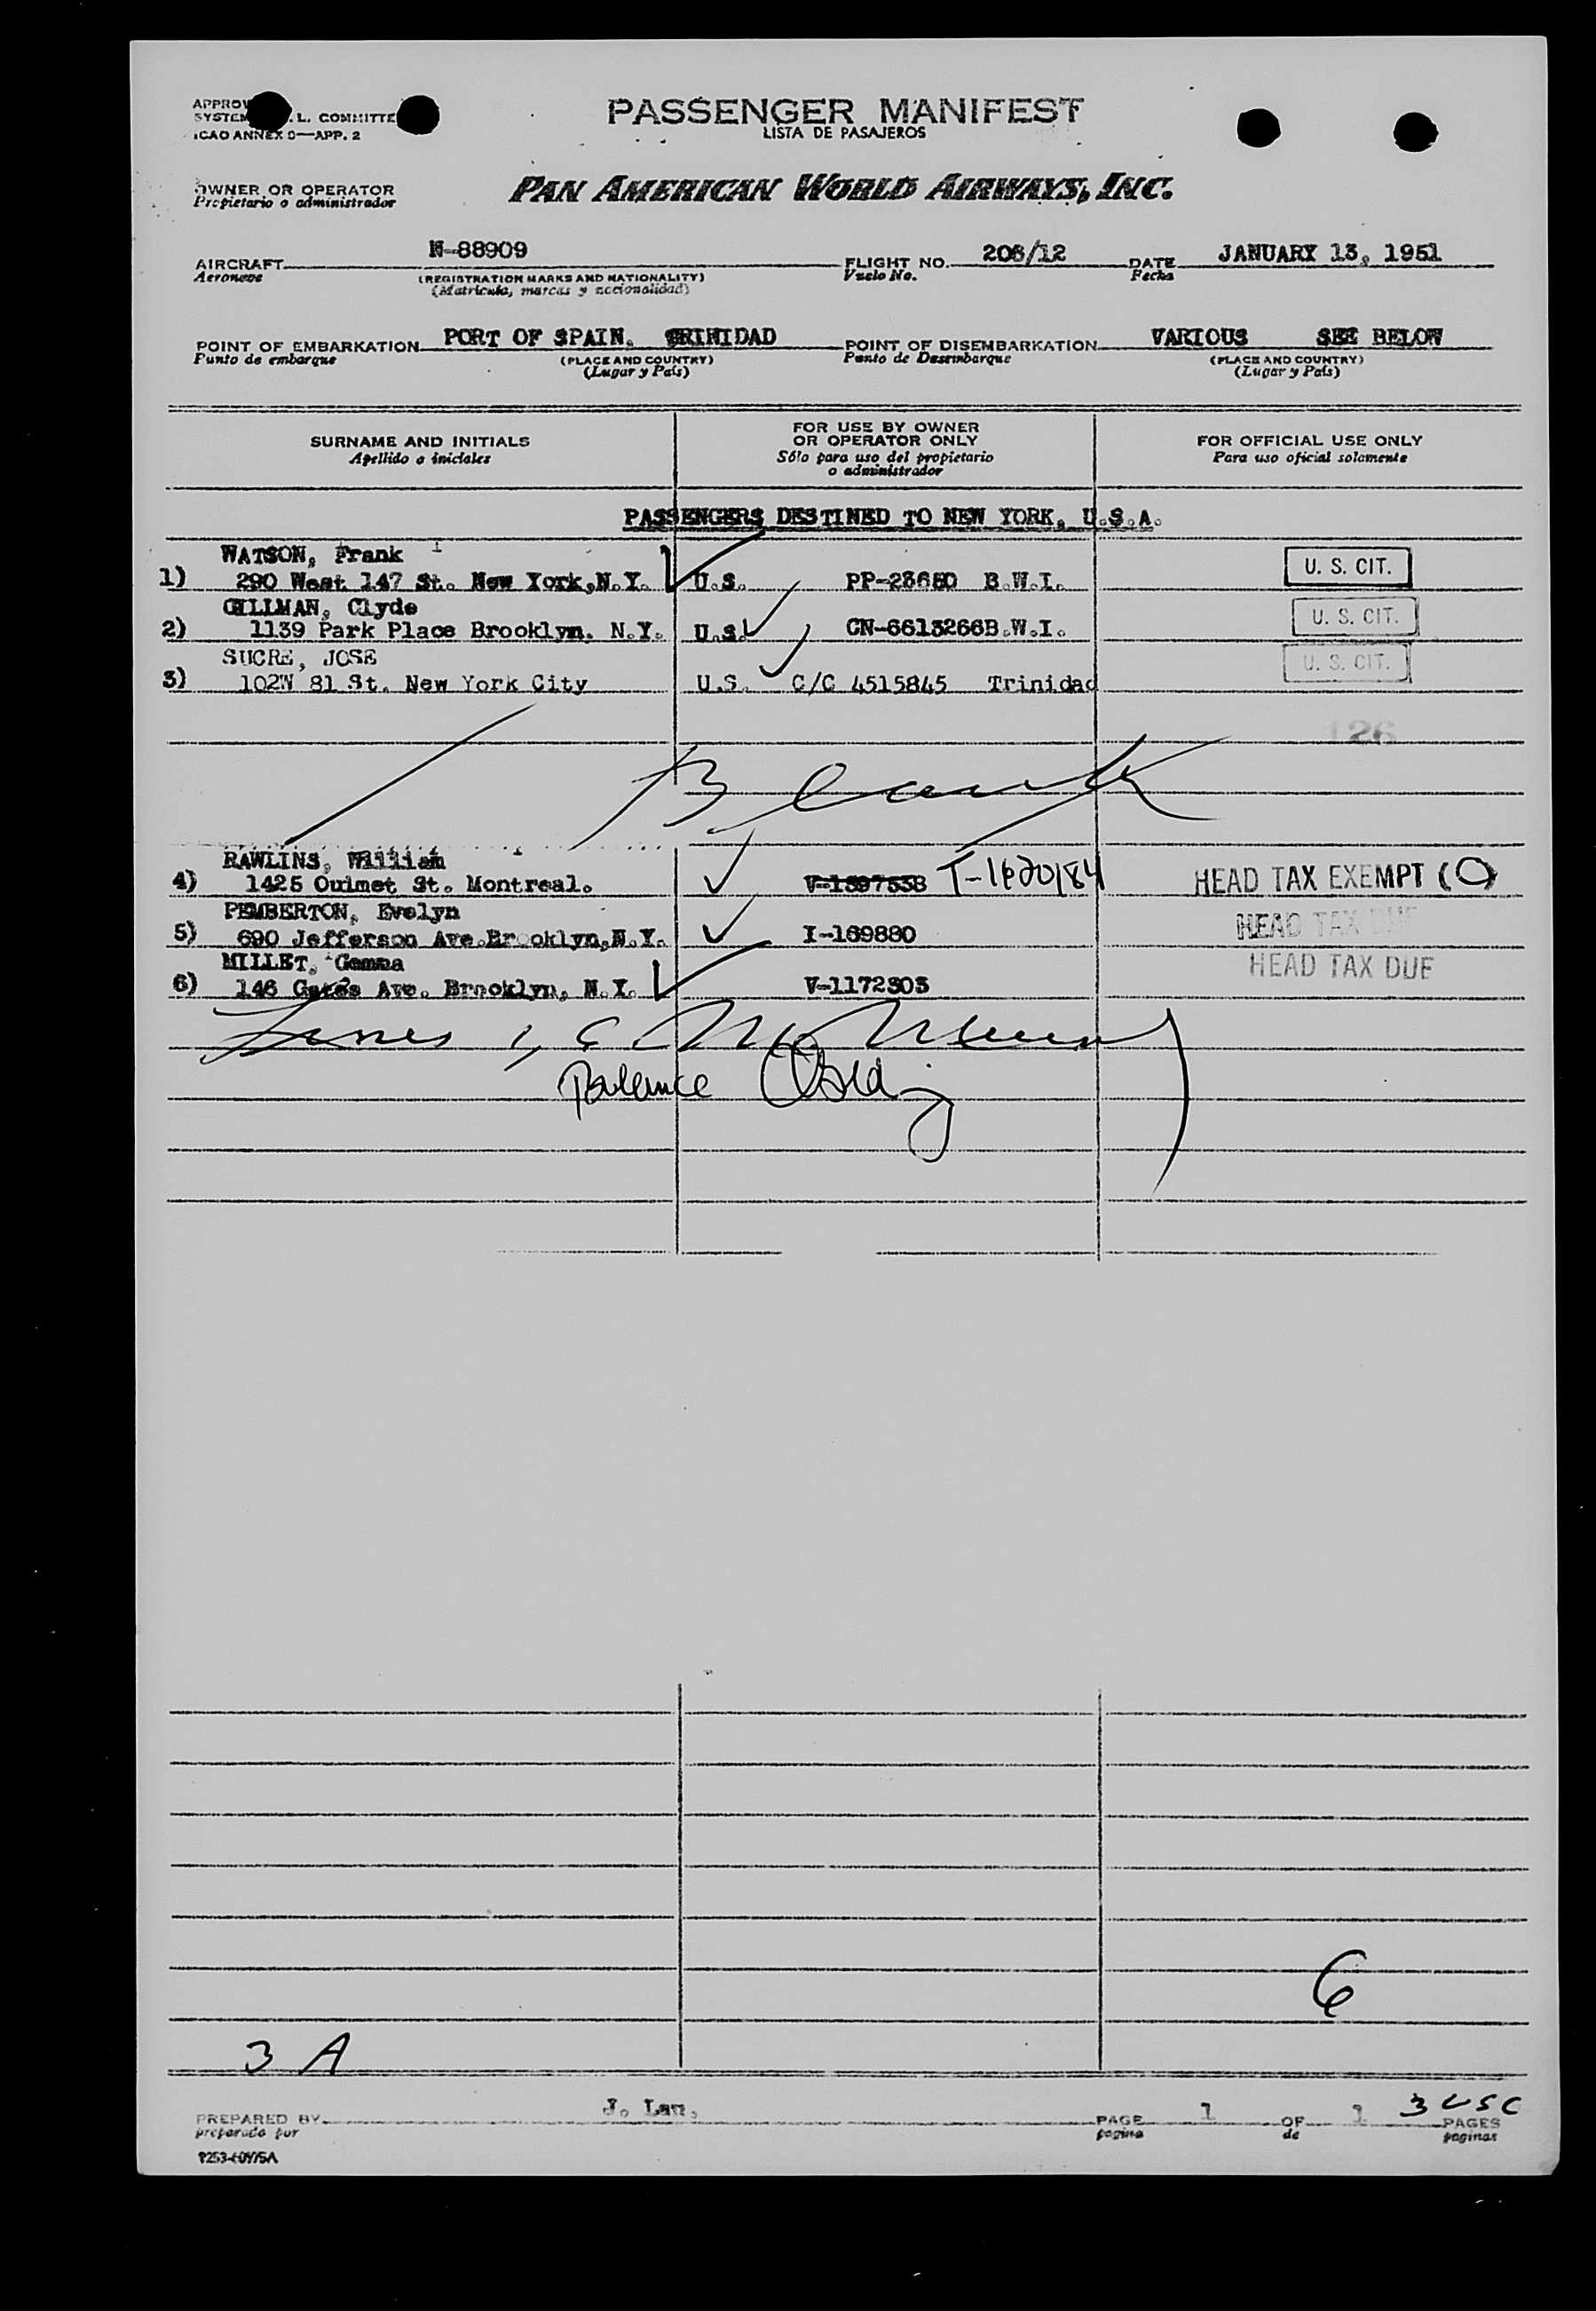 PASSENGER MANIFEST
LISTA DE PASAJEROS
APPROV
SYSTEM . L. COMMITTE
ICAO ANNEX 9—APP. 2
OWNER OR OPERATOR
Propietario o administrador
PAN AMERICAN WORLD AIRWAYS, INC.
AIRCRAFT N-88909 FLIGHT NO. 206/12 DATE JANUARY 13, 1951
Aeronave (REGISTRATION MARKS AND NATIONALITY) Vuelo No. Fecha
(Matricula, marcas y nacionalidad)
POINT OF EMBARKATION PORT OF SPAIN, TRINIDAD POINT OF DISEMBARKATION VARIOUS SEE BELOW
Punto de embarque (PLACE AND COUNTRY) Punto de Desembarque (PLACE AND COUNTRY)
(Lugar y País) (Lugar y País)
SURNAME AND INITIALS FOR USE BY OWNER OR OPERATOR ONLY FOR OFFICIAL USE ONLY
Apellido o iniciales Sólo para uso del propietario o administrador Para uso oficial solamente
PASSENGERS DESTINED TO NEW YORK, U.S.A.
WATSON, Frank
1) 290 West 147 St. New York,N.Y. U.S. PP-23680 B.W.I. U. S. CIT.
GILLMAN, Clyde
2) 1139 Park Place Brooklyn. N.Y. U.S. CN-6613266B.W.I. U. S. CIT.
SUCRE, JOSE
3) 102W 81 St. New York City U.S. C/C 4515845 Trinidad U. S. CIT.
126
Blank
RAWLINS, William
4) 1425 Ouimet St. Montreal. V-1397538 T-1620184 HEAD TAX EXEMPT (O)
PEMBERTON, Evelyn
5) 690 Jefferson Ave.Brooklyn,N.Y. I-169880 HEAD TAX DUE
MILLET, Gemma
6) 146 Gates Ave. Brooklyn, N.Y. V-1172303 HEAD TAX DUE
Lines 1, 6
Balance
6
3 A
PREPARED BY J. Lau, PAGE 1 OF 1 PAGES 3 USC
preparado por pagina de paginas